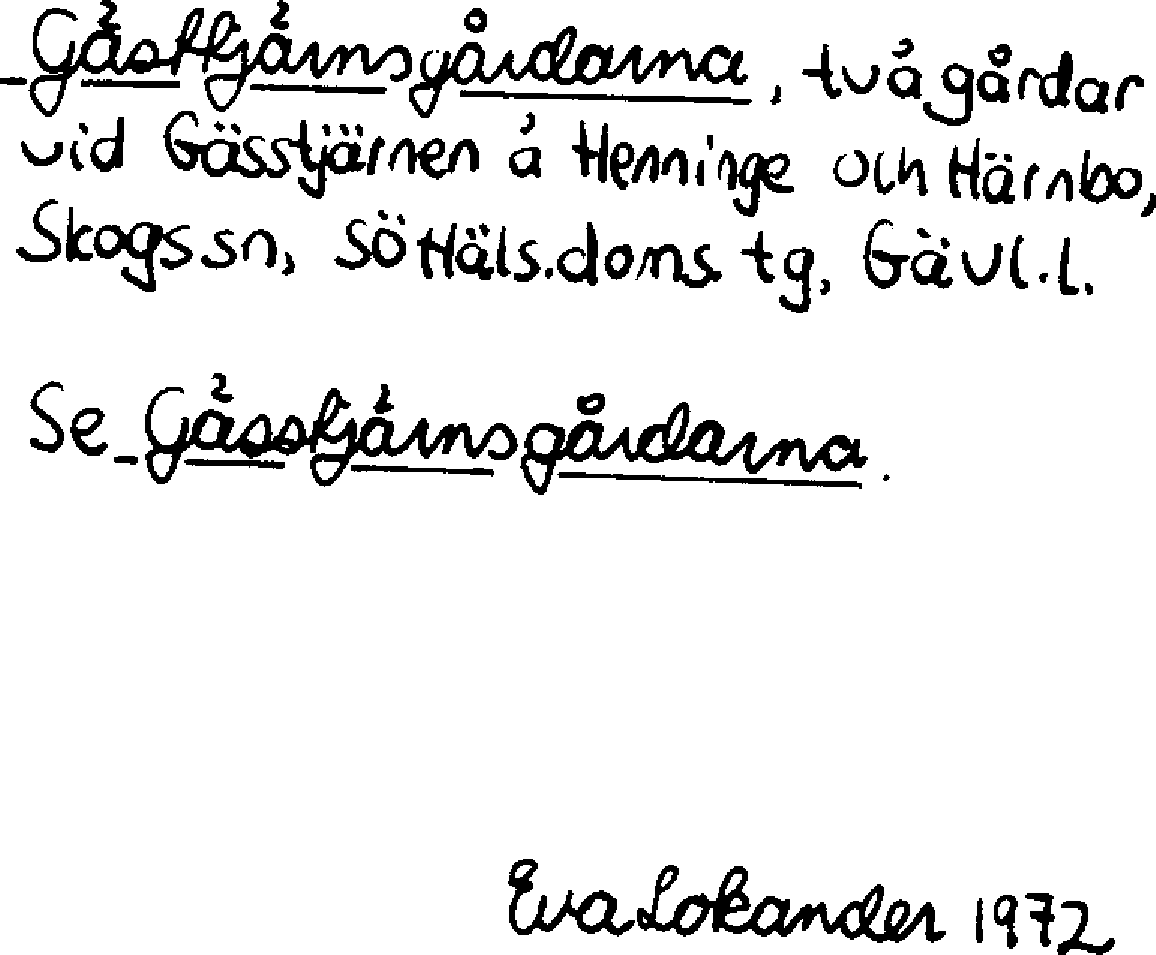 Gästtjärnsgårdarna, två gårdar
vid Gässtjärnen å Henninge och Härnbo,
Skogs sn, SöHäls.doms. tg, Gävl.l.
Se Gässtjärnsgårdarna.
Eva Lokander 1972